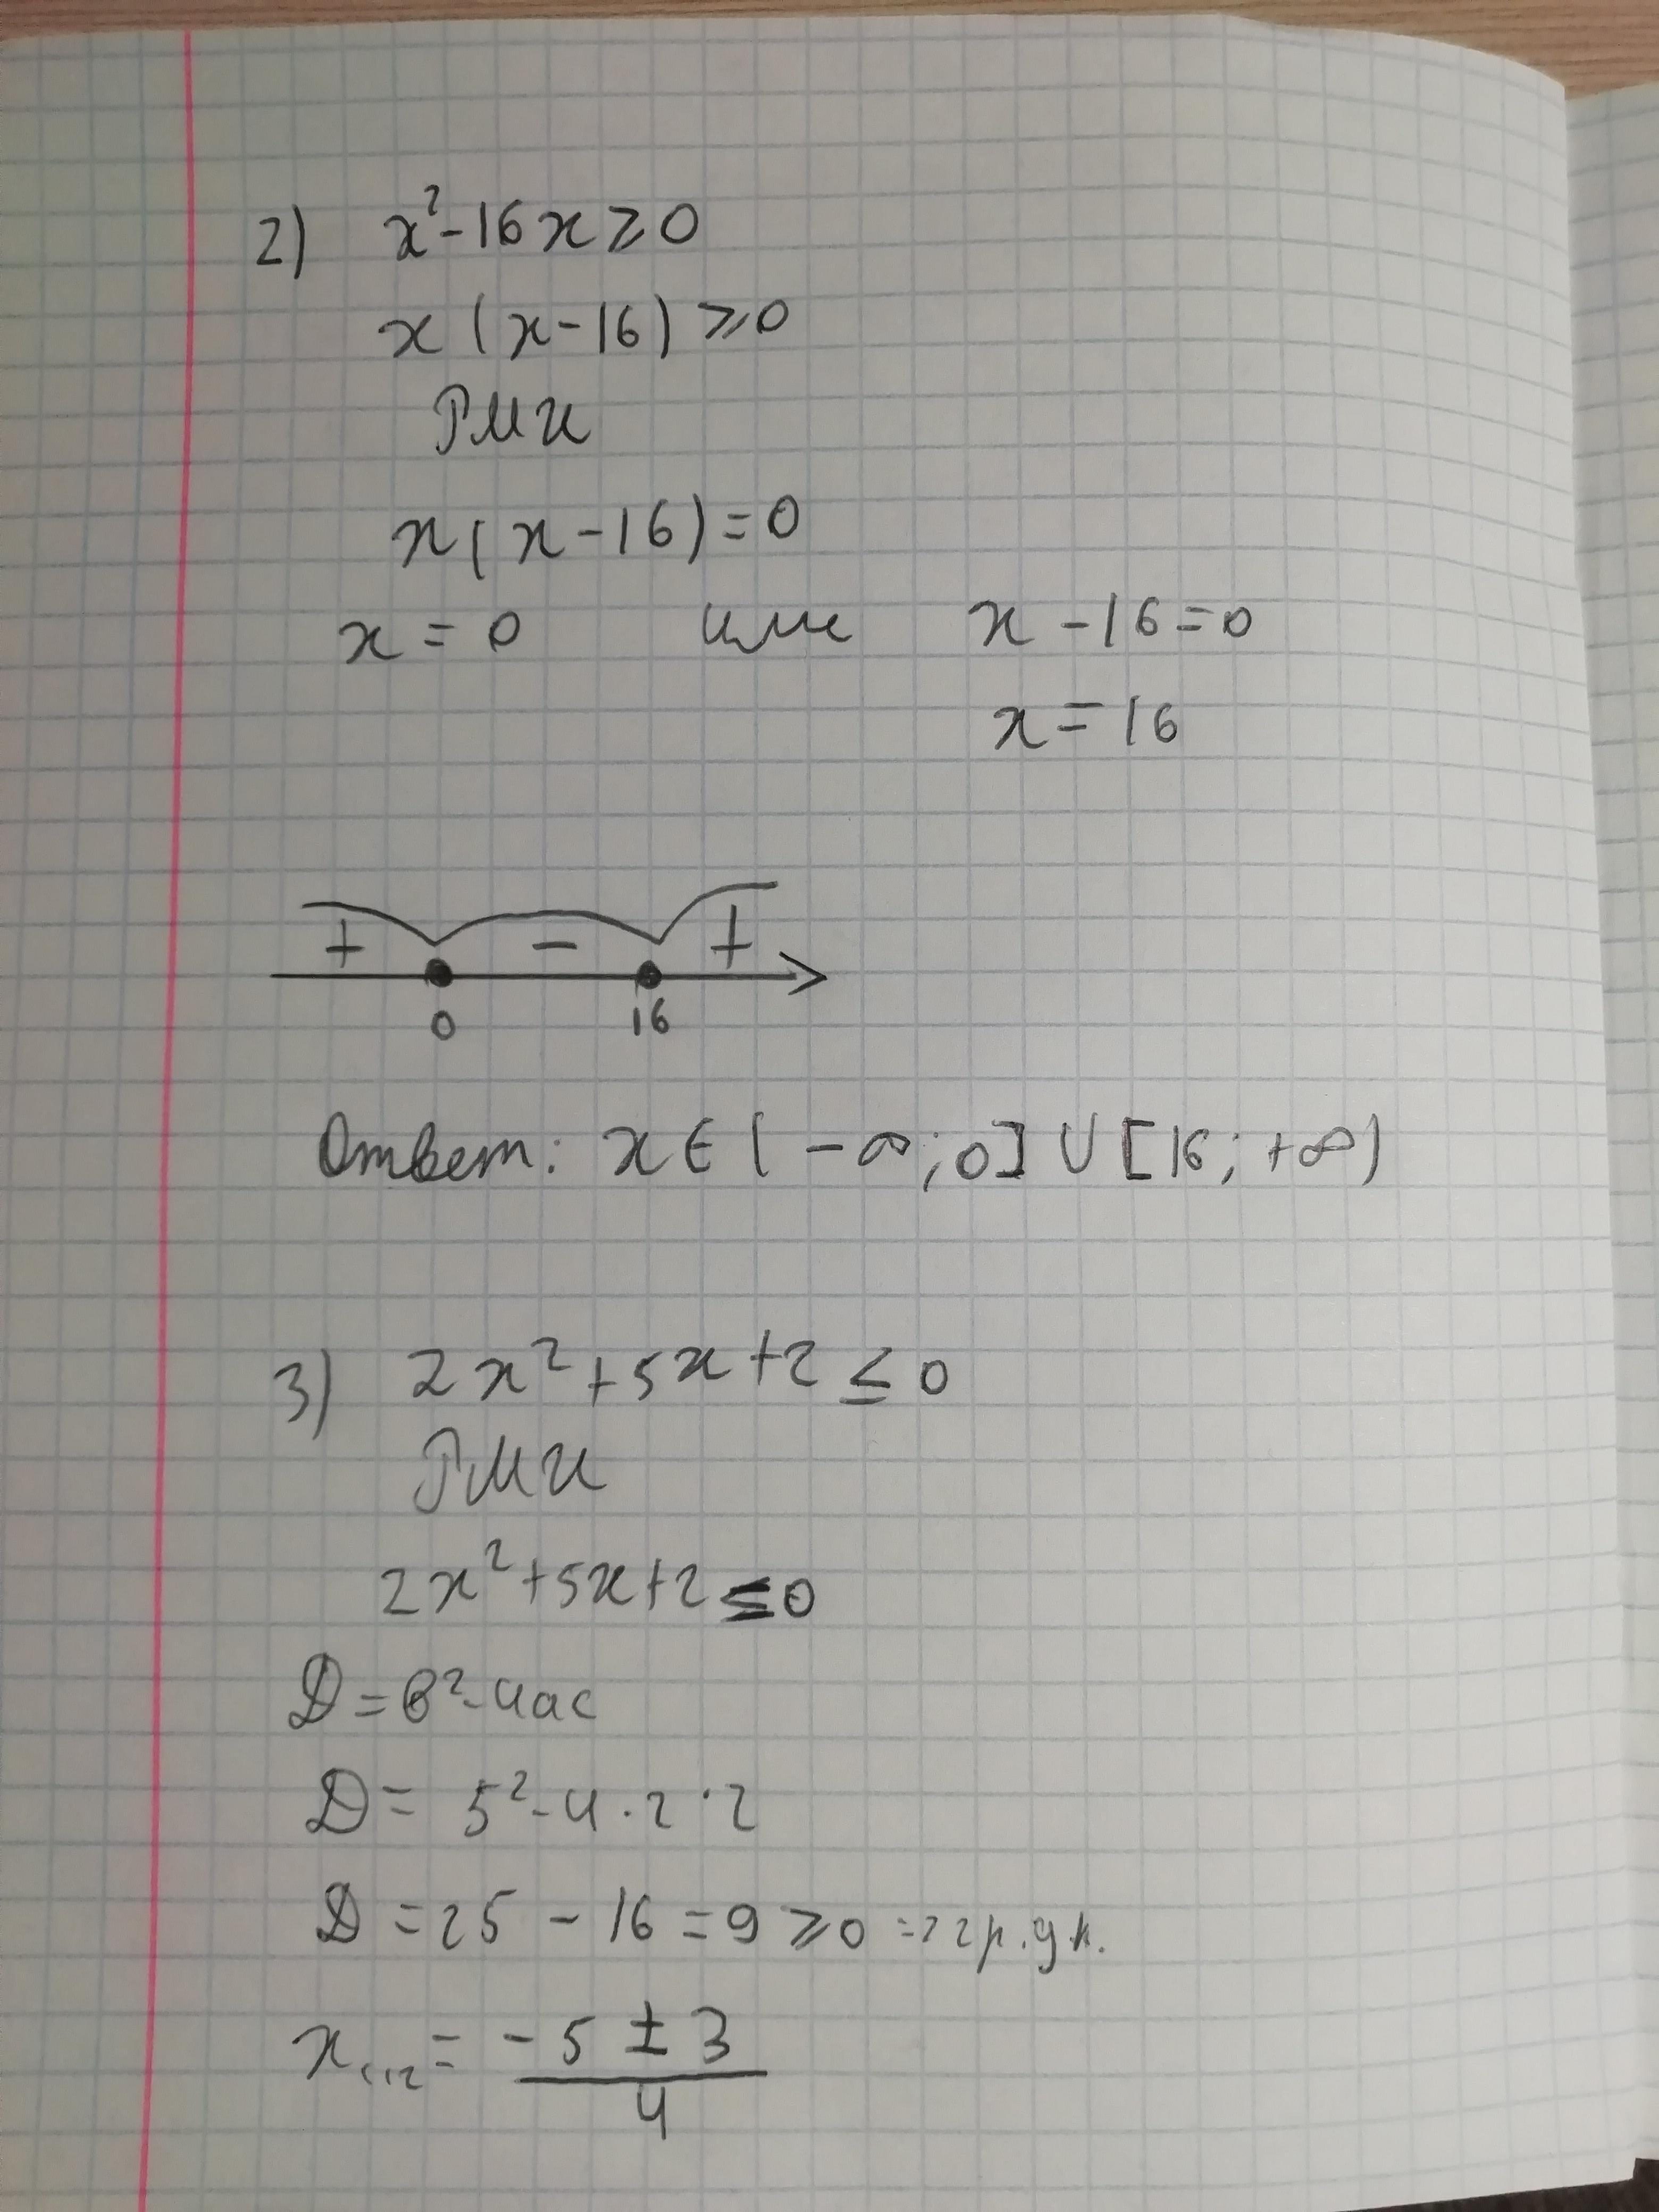 2) x²-16x⩾0
x(x-16)⩾0
РМИ
x(x-16)=0
x=0 или x-16=0
x=16
+ - +
0 16
Ответ: x∈(-∞;0]∪[16;+∞)
3) 2x²+5x+2≤0
РМИ
2x²+5x+2≤0
D=в²-4ас
D= 5²-4·2·2
D=25-16=9⩾0 => 2р.д.к.
x₁,₂= -5±3
4